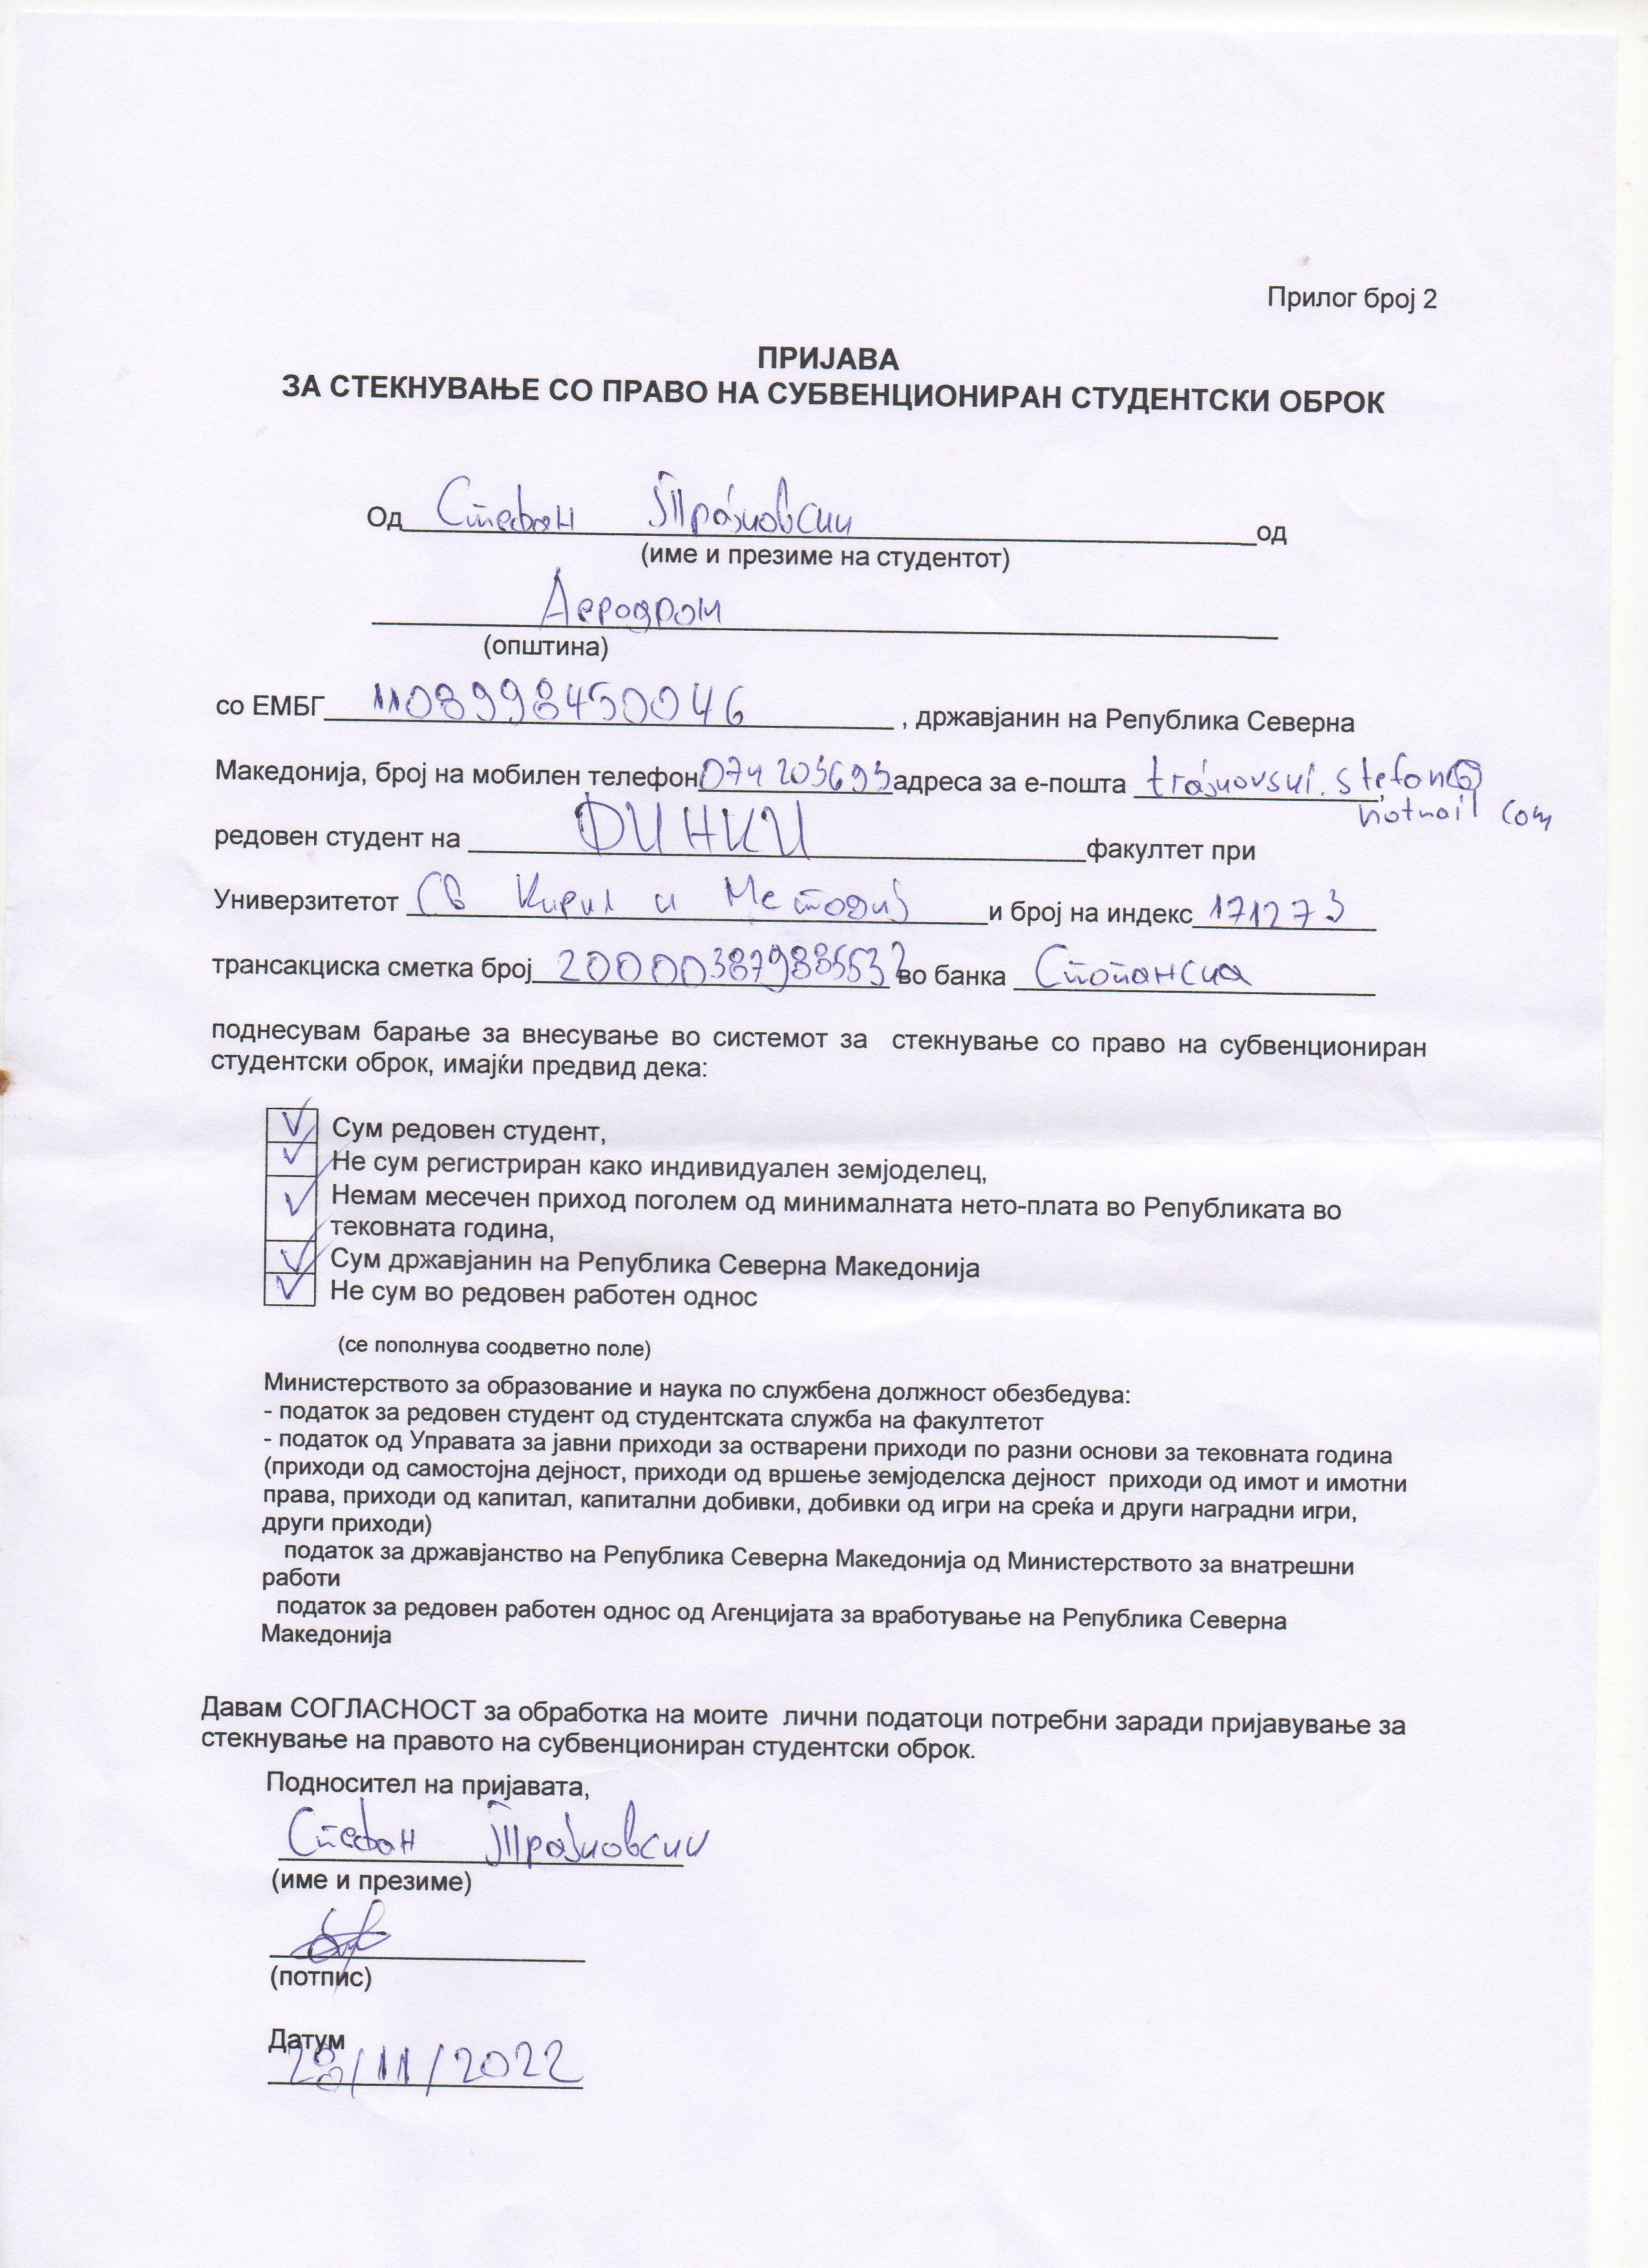 Прилог број 2
ПРИЈАВА
ЗА СТЕКНУВАЊЕ СО ПРАВО НА СУБВЕНЦИОНИРАН СТУДЕНТСКИ ОБРОК
Од Стефан Трајковски од
(име и презиме на студентот)
Аеродром
(општина)
со ЕМБГ 1108998450046 , државјанин на Република Северна
Македонија, број на мобилен телефон 074203693 адреса за е-пошта trajkovski.stefan@
hotmail com
редовен студент на ФИНКИ факултет при
Универзитетот Св Кирил и Методиј и број на индекс 171273
трансакциска сметка број во банка Стопанска
поднесувам барање за внесување во системот за стекнување со право на субвенциониран
студентски оброк, имајќи предвид дека:
Сум редовен студент,
Не сум регистриран како индивидуален земјоделец,
Немам месечен приход поголем од минималната нето-плата во Републиката во
тековната година,
Сум државјанин на Република Северна Македонија
Не сум во редовен работен однос
(се пополнува соодветно поле)
Министерството за образование и наука по службена должност обезбедува:
- податок за редовен студент од студентската служба на факултетот
- податок од Управата за јавни приходи за остварени приходи по разни основи за тековната година
(приходи од самостојна дејност, приходи од вршење земјоделска дејност приходи од имот и имотни
права, приходи од капитал, капитални добивки, добивки од игри на среќа и други наградни игри,
други приходи)
податок за државјанство на Република Северна Македонија од Министерството за внатрешни
работи
податок за редовен работен однос од Агенцијата за вработување на Република Северна
Македонија
Давам СОГЛАСНОСТ за обработка на моите лични податоци потребни заради пријавување за
стекнување на правото на субвенциониран студентски оброк.
Подносител на пријавата,
Стефан Трајковски
(име и презиме)
(потпис)
Датум
28/11/2022